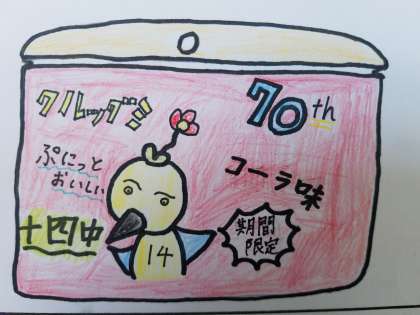 クルッグミ
70th
ぷにっと
おいしい
コーラ味
十四中
期間
限定
14